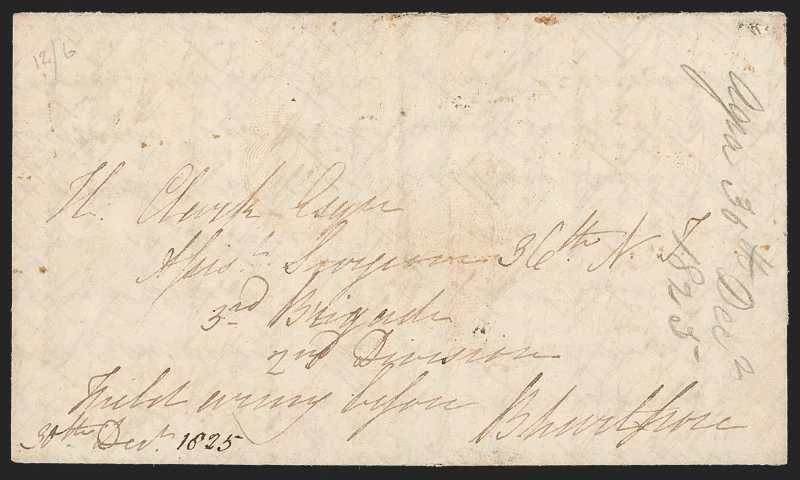 12/6
H. Clark Esqre
Assist. Surgeon 36th N. I.
3rd Brigade
2nd Division
Field army before Bhurtpore
30th Decr. 1825
Agra 30th Decr
1825